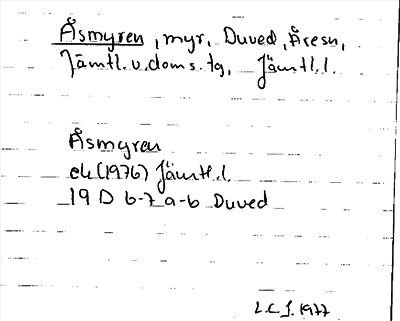 Åsmyren, myr, Duved, Åresn,
Jämtl.v.doms.tg, Jämtl.l.
Åsmyren
ek (1976) Jämtl.l.
19 D 6-7 a-b Duved
L.C.J. 1977